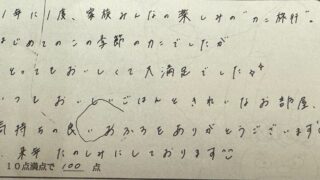 1年に1度、家族みんなの楽しみの"カニ旅行"。
はじめてのこの季節のカニでしたが
とってもおいしくて大満足でした
いつもおいしいごはんときれいなお部屋、
気持ちの良いおふろをありがとうございます
来年たのしみにしております
10点満点で 100 点